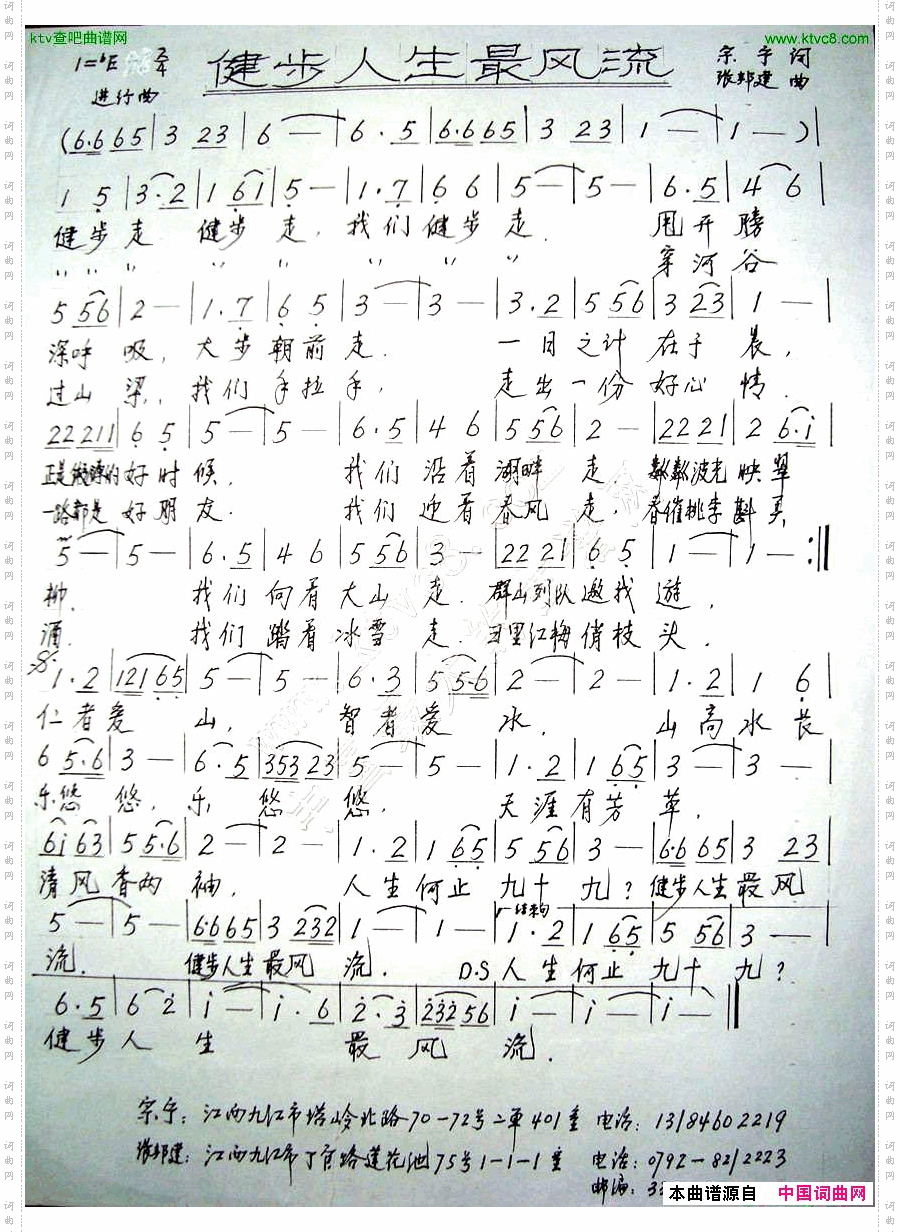 ktv查吧曲谱网 www.ktvc8.com
1=♭E 2/4 健步人生最风流 宗宁 词
进行曲 张邦建 曲
(6·6 6 5 | 3 2 3 | 6 — | 6 · 5 | 6·6 6 5 | 3 2 3 | 1 — | 1 — ) |
1 5 | 3·2 | 1 6 1 | 5 — | 1·7 | 6 6 | 5 — | 5 — | 6·5 | 4 6 |
健步走 健步走, 我们健步走. 甩开膀
〃 〃 〃 〃 〃 〃 〃 穿河谷
5 5 6 | 2 — | 1·7 | 6 5 | 3 — | 3 — | 3·2 | 5 5 6 | 3 2 3 | 1 — |
深呼吸, 大步朝前走. 一日之计在于晨,
过山梁, 我们手拉手, 走出一份好心情.
2 2 2 1 1 | 6 5 | 5 — | 5 — | 6·5 | 4 6 | 5 5 6 | 2 — | 2 2 2 1 | 2 6·i |
正是锻炼的好时候. 我们沿着湖畔走 粼粼波光映翠
一路都是好朋友. 我们迎着春风走. 春催桃李斟美
5 — | 5 — | 6·5 | 4 6 | 5 5 6 | 3 — | 2 2 2 1 | 6·5 | 1 — | 1 — :‖
柳. 我们向着大山走. 群山列队邀我游,
酒. 我们踏着冰雪走. 红梅俏枝头
1·2 | 1 2 1 6 5 | 5 — | 5 — | 6·3 | 5 5·6 | 2 — | 2 — | 1·2 | 1 6 |
仁者爱山, 智者爱水, 山高水长
6 5·6 | 3 — | 6·5 | 3 5 3 2 3 | 5 — | 5 — | 1·2 | 1 6 5 | 3 — | 3 — |
乐悠悠, 乐悠悠, 天涯有芳草,
6 i 6 3 | 5 5·6 | 2 — | 2 — | 1·2 | 1 6 5 | 5 5 6 | 3 — | 6·6 6 5 | 3 2 3 |
清风香两袖, 人生何止九十九? 健步人生最风
结束句
5 — | 5 — | 6·6 6 5 | 3 2 3 2 | 1 — | 1 — | 1·2 | 1 6 5 | 5 5 6 | 3 — |
流. 健步人生最风流. D.S 人生何止九十九?
6·5 | 6 2 | i — | i·6 | 2·3 | 2 3 2 5 6 | i — | i — | i — ‖
健步人生最风流.
宗宁: 江西九江市塔岭北路70-72号二单401室 电话: 13184602219
张邦建: 江西九江市丁官路莲花池75号1-1-1室 电话: 0792-8212223
邮编: 3
本曲谱源自 中国词曲网